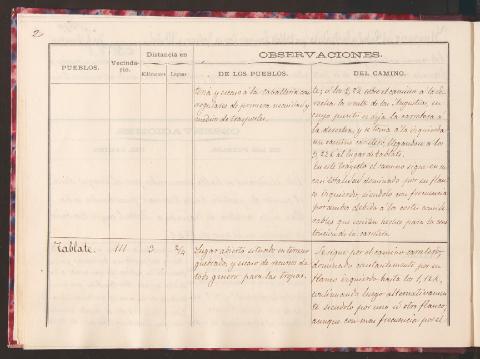 2
PUEBLOS.
Vecindario.
Distancia en
Kilómetros
Leguas
OBSERVACIONES.
DE LOS PUEBLOS.
DEL CAMINO.
tena y escaso a la caballeria con
regulares de primera necesidad y
medios de trasportes.
á los 2,2 k sobre el camino a la de-
recha la venta de las Angustias, en
cuyo punto se deja la carretera a
la derecha, y se toma a la izquierda
un camino carretero, llegandose a los
3,22 k al lugar de Tablate.
En este trayecto el camino sigue en su
casi totalidad dominado por su flanco
izquierdo, siendolo con frecuencia
por ambos debido a los cortes
que
de la carretera.
Tablate.
111
3
3/4
Lugar abierto situado en terreno
quebrado, y escaso de recursos de
todo genero para las tropas.
Se sigue por el camino carretero,
dominado constantemente por su
flanco izquierdo hasta los 1,12 k,
continuando luego alternativamen-
te siendolo por uno ú otro flanco,
aunque con mas frecuencia por el